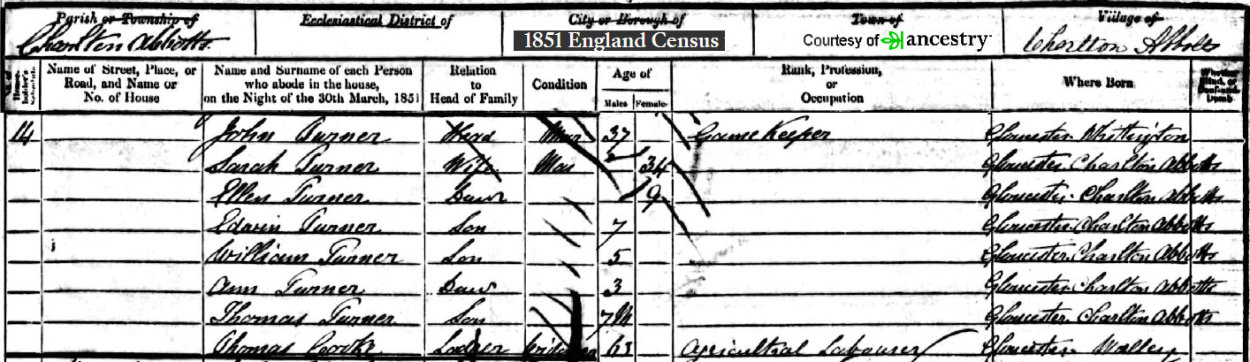 Parish or Township of Ecclesiastical District of City or Borough of Town of Village of
Charlton Abbotts 1851 England Census Courtesy of ancestry Charlton Abbotts
Name of Street, Place, or Road, and Name or No. of House Name and Surname of each Person who abode in the house, on the Night of the 30th March, 1851 Relation to Head of Family Condition Age of Males Females Rank, Profession, or Occupation Where Born Whether Blind, or Deaf-and-Dumb
14 John Turner Head Mar 37 Game Keeper Gloucester Whittington
Sarah Turner Wife Mar 34 Gloucester Charlton Abbotts
Ellen Turner Daur 9 Gloucester Charlton Abbotts
Edwin Turner Son 7 Gloucester Charlton Abbotts
William Turner Son 5 Gloucester Charlton Abbotts
Ann Turner Daur 3 Gloucester Charlton Abbotts
Thomas Turner Son 7M Gloucester Charlton Abbotts
Thomas Lodger Widower 63 Agricultural Labourer Gloucester